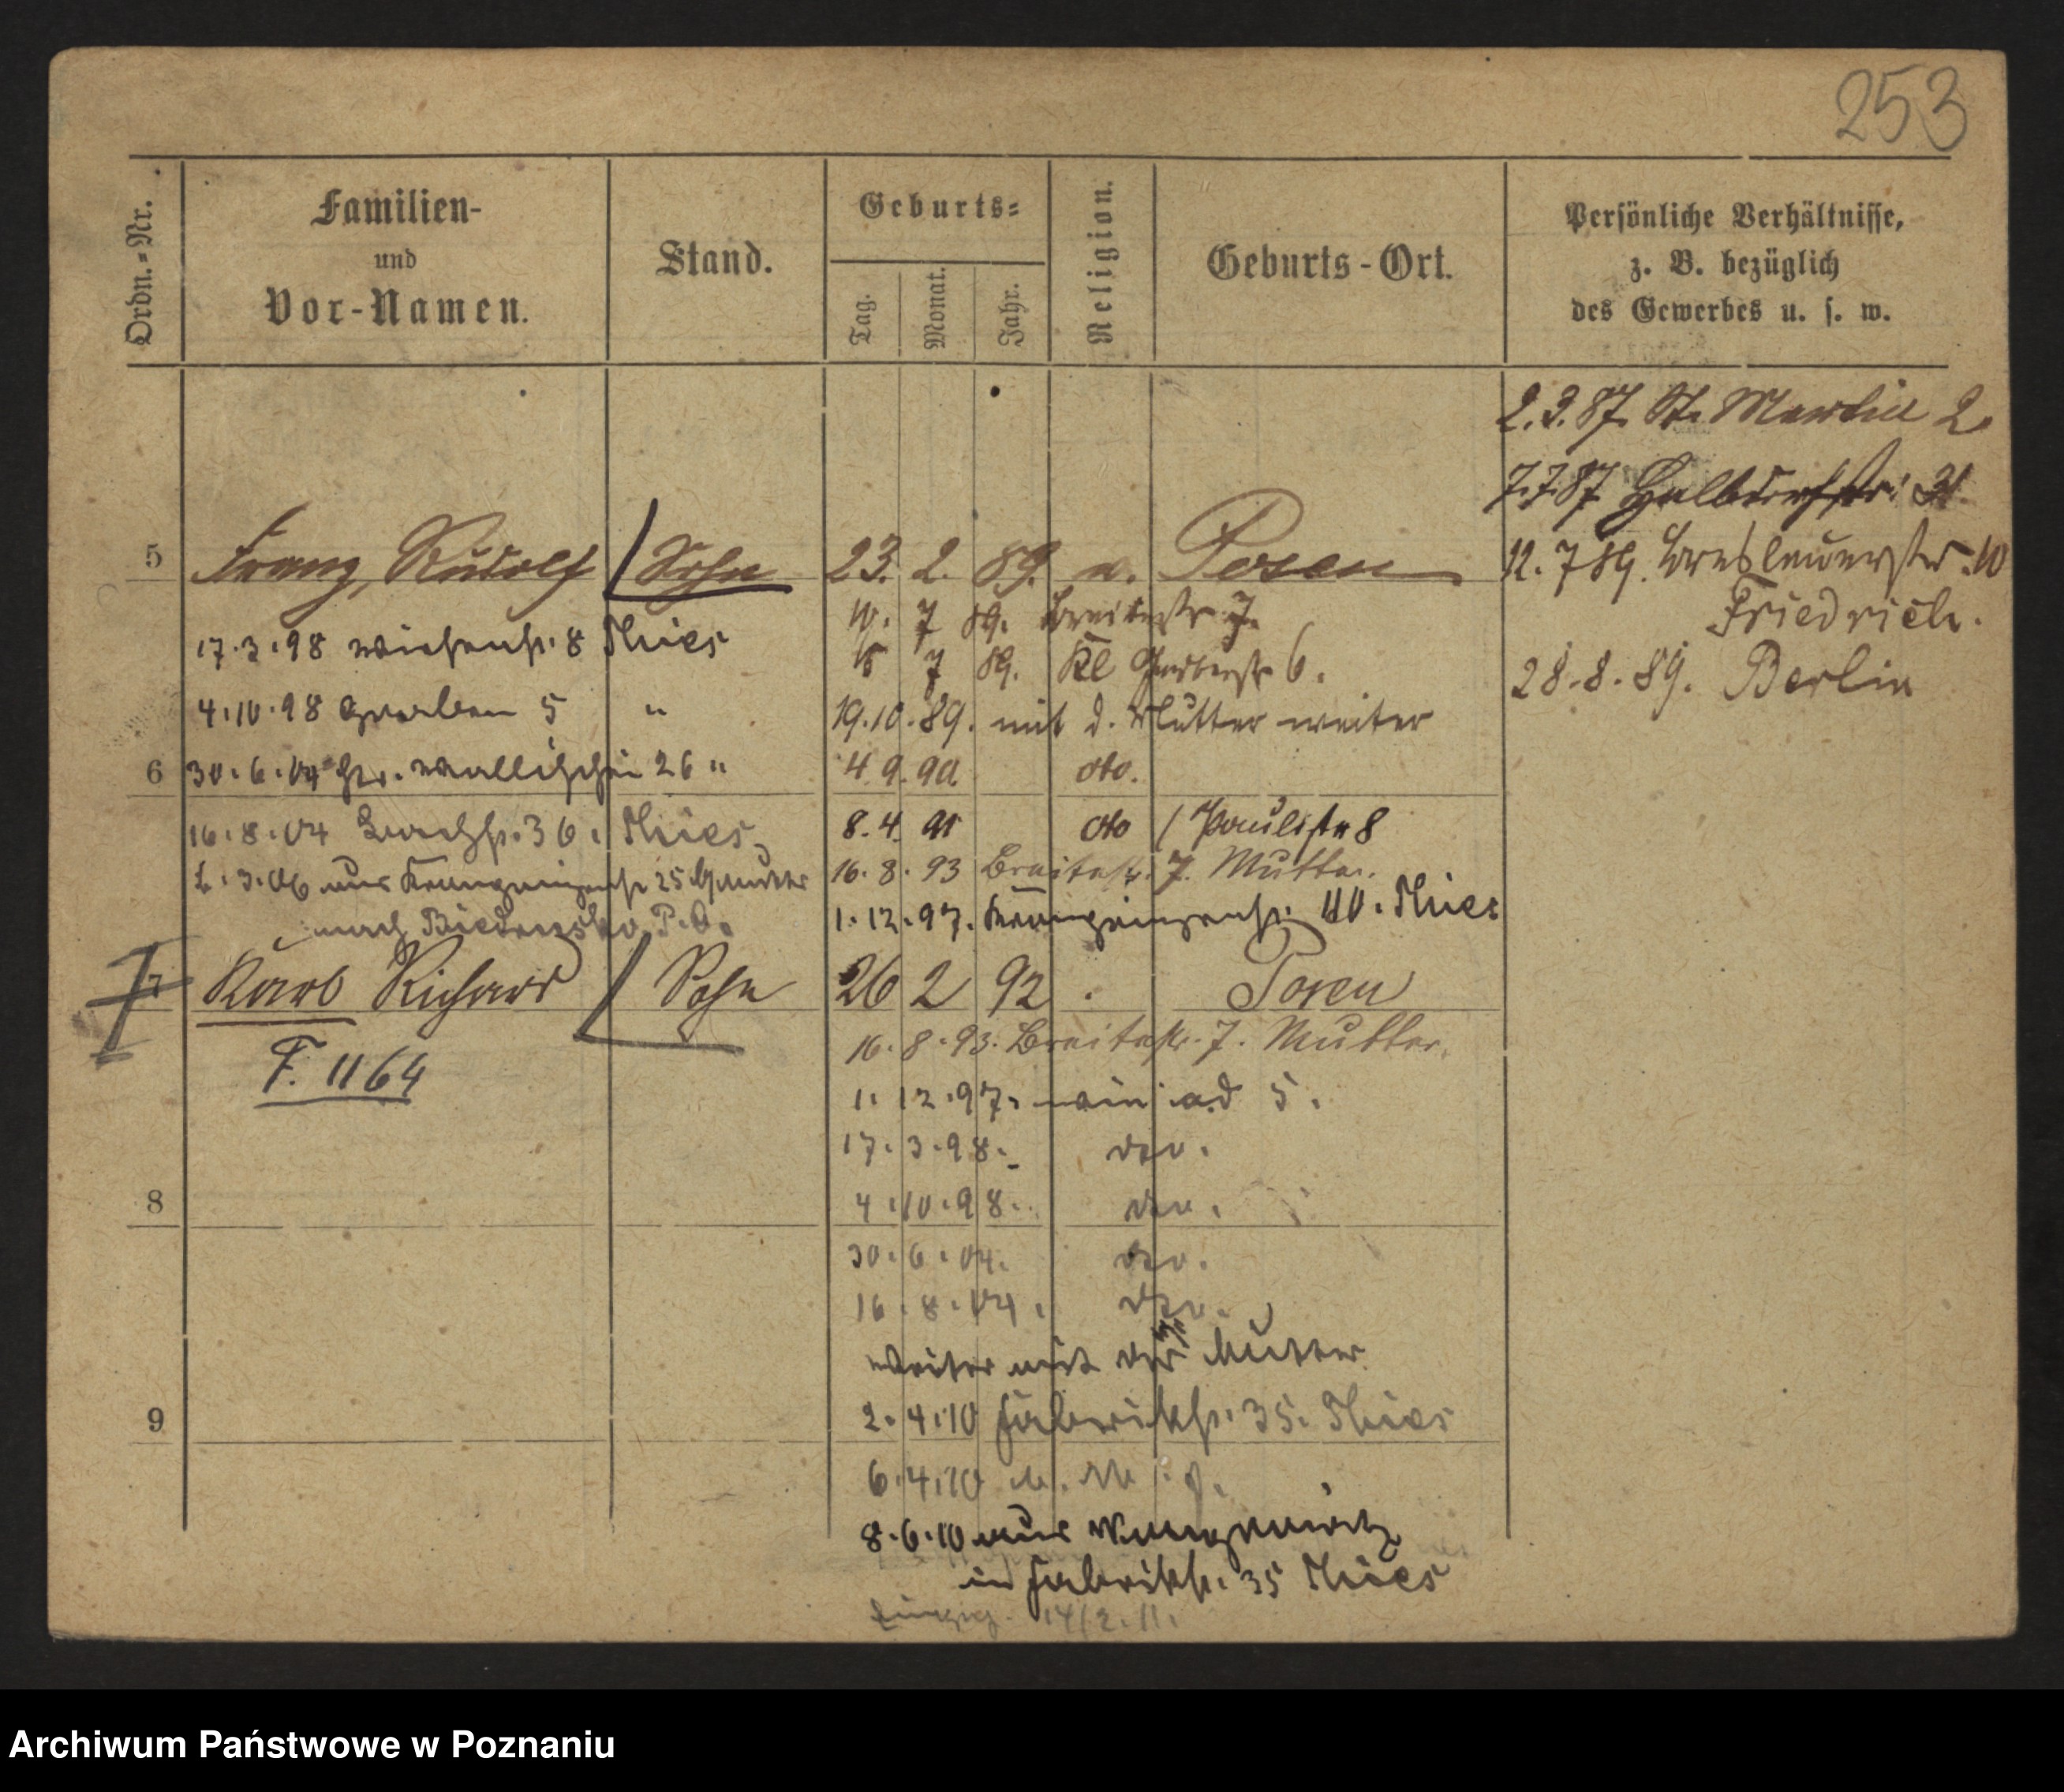 253
Ordn.-Nr.
Familien-
und
Vor-Namen.
Stand.
Geburts-
Tag.
Monat.
Jahr.
Religion.
Geburts-Ort.
Persönliche Verhältnisse,
z. B. bezüglich
des Gewerbes u. s. w.
2.3.87. St. Martin 2.
7.7.87 Halbdorfstr. 31.
12.7 89. Breslauerstr. 10
Friedrich.
28.8.89. Berlin
5 Franz, Rudolf Sohn 23. 2. 89. Posen
10. 7 89. Breitestr 7.
17.3.98 Wiesenstr. 8 Thies
7 89. Kl Gerberstr 6.
4.10.98 Graben 5 "
19.10.89. mit d. Mutter weiter
6 30.6.04 Gr. Wallischei 26 "
4.9.90. dto.
16.8.04 36. Thies
8.4.91 dto / Paulistr 8
3.06 aus 25 Mutter
16.8.93 Breitestr. 7. Mutter.
nach Biedrusko P.A.
1.12.97. Thies
7 Karl Richard Sohn 26 2 92 Posen
16.8.93. Breitestr. 7. Mutter.
F. 1164
1.12.97. ad 5.
17.3.98. dto.
8
4.10.98. dto.
30.6.04. dto.
16.8.04. dto.
weiter mit der Mutter
9
2.4.10 Fabrikstr. 35. Thies
6.4.10
8.6.10 aus
in Fabrikstr. 35 Thies
14/2.11.
Archiwum Państwowe w Poznaniu